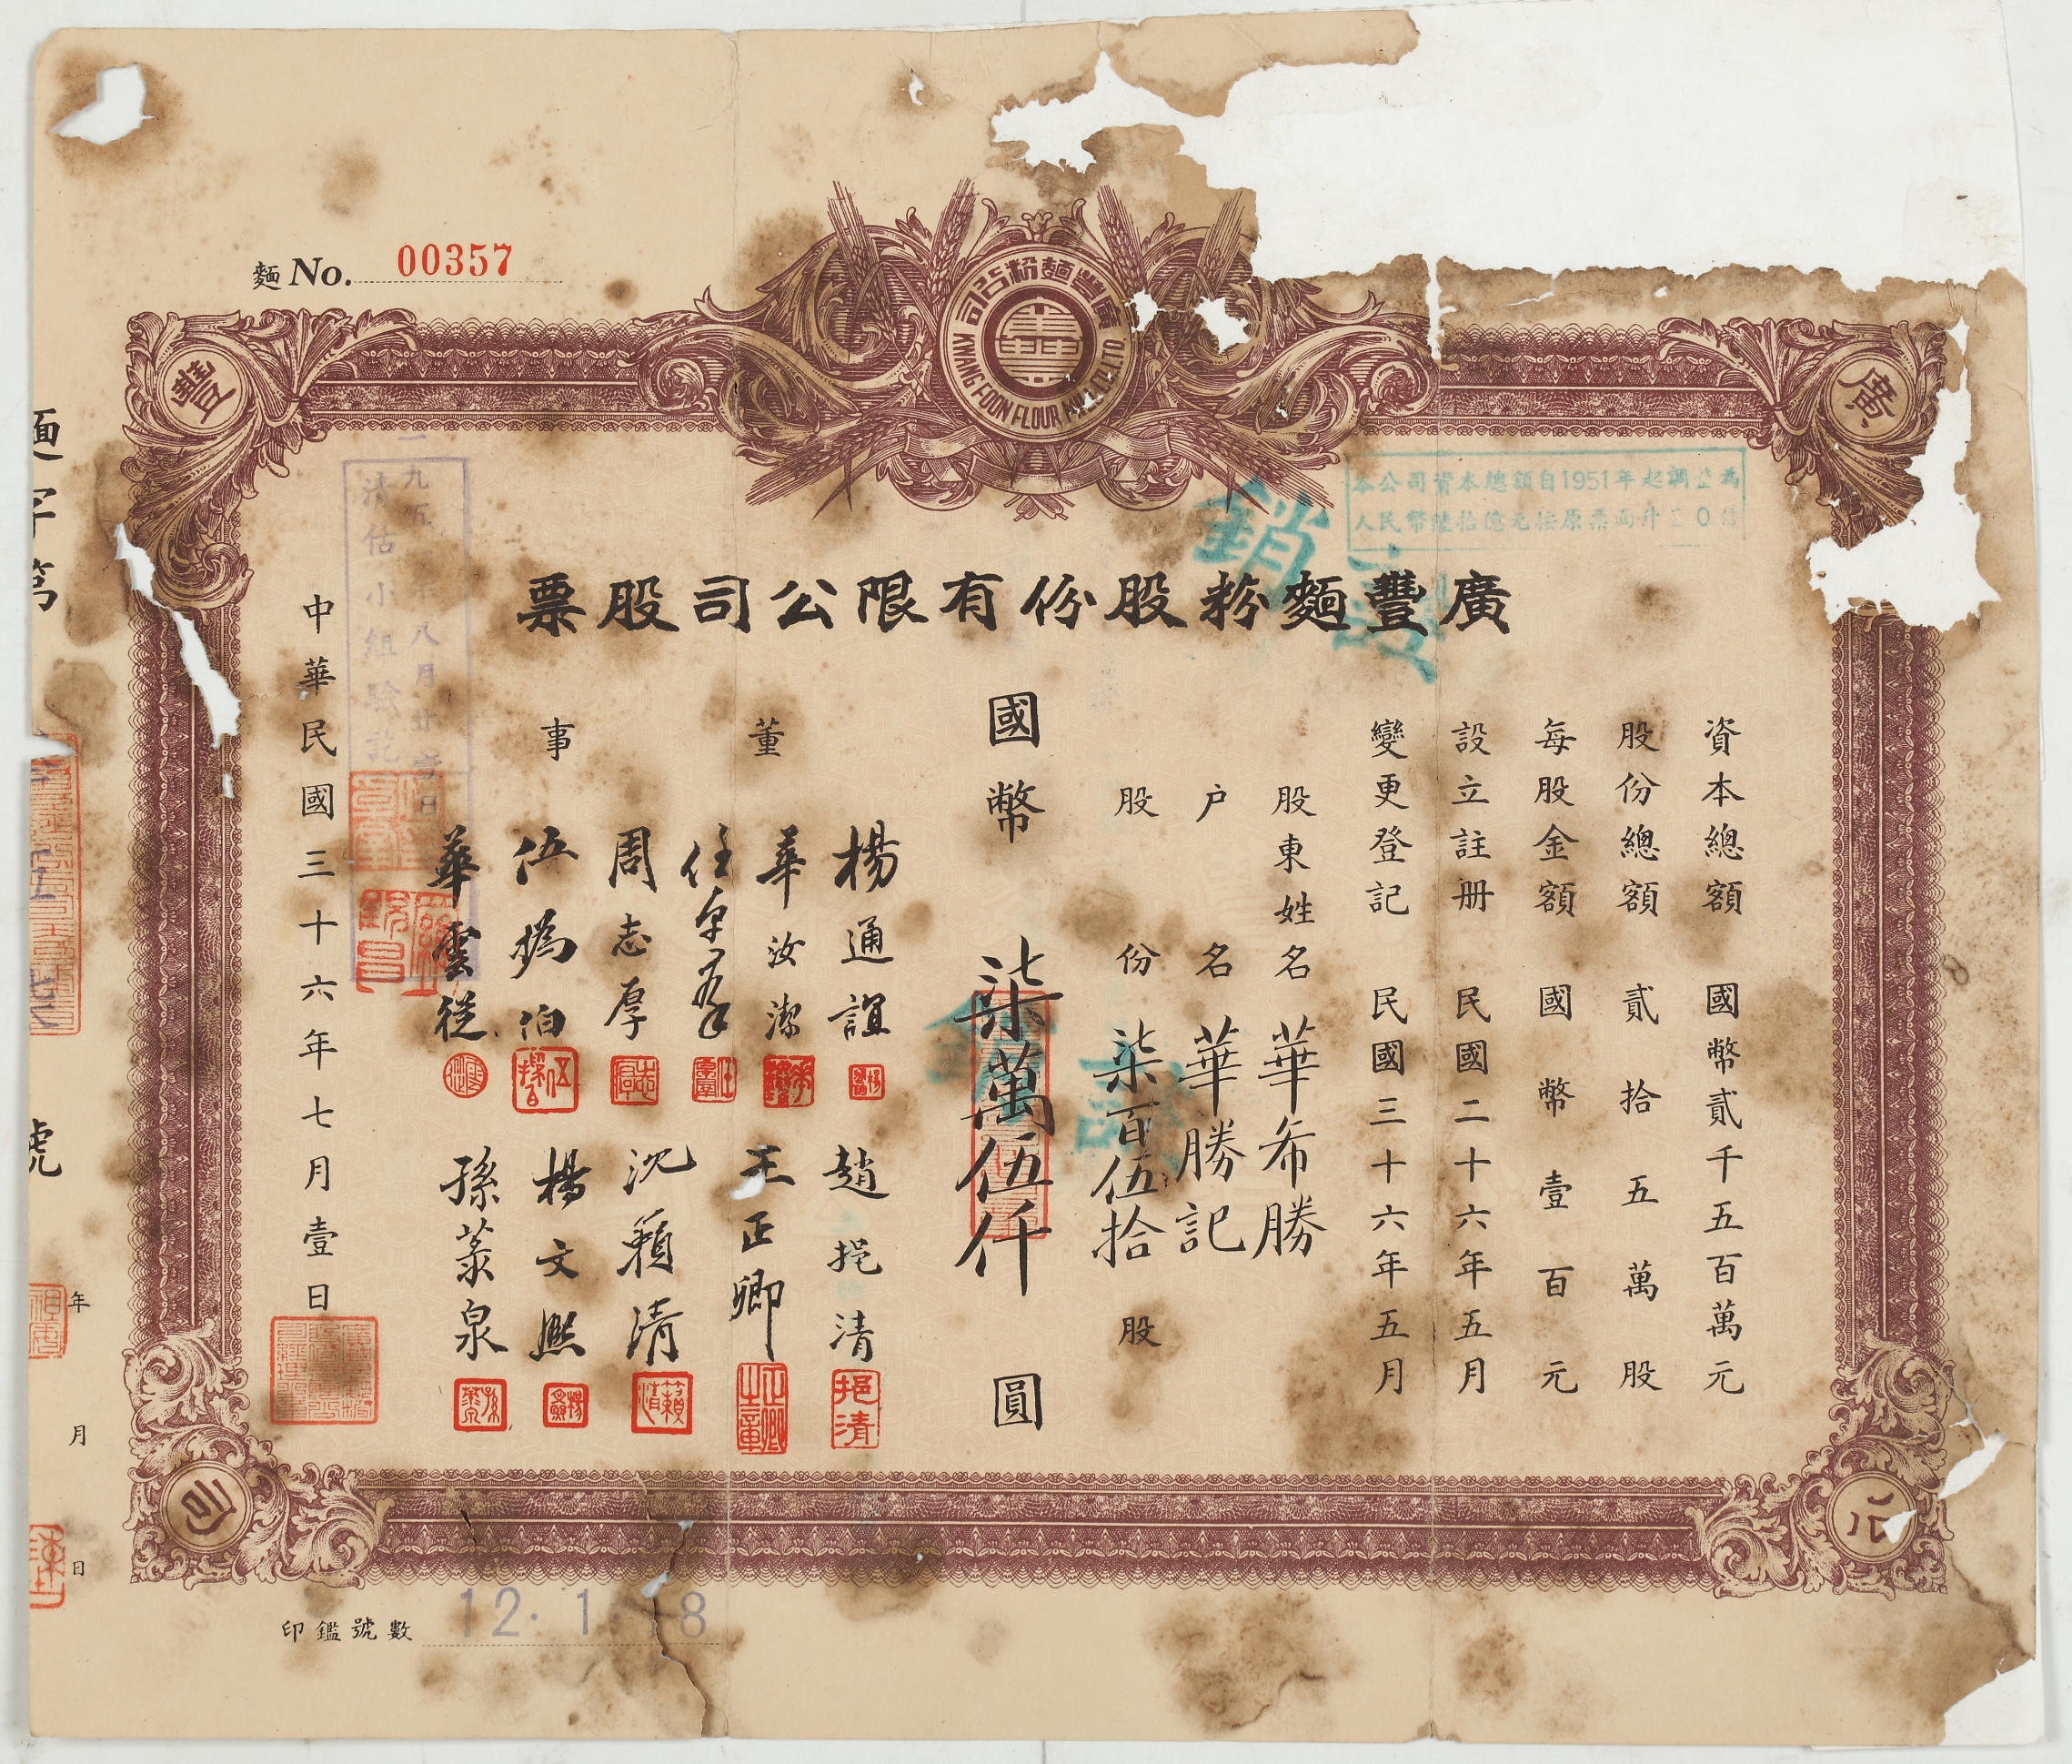 麵 No. 00357
廣豐麵粉公司
KWANG FOON FLOUR CO. LTD.
廣
豐
公
司
本公司資本總額自1951年起調整為
人民幣陸拾億元按原票面升 0
廣豐麵粉股份有限公司股票
資本總額 國幣貳千五百萬元
股份總額 貳拾五萬股
每股金額 國幣壹百元
設立註册 民國二十六年五月
變更登記 民國三十六年五月
股東姓名 華希勝
户名 華勝記
股份 柒百伍拾 股
國幣 柒萬伍仟 圓
註銷
董事
楊通誼
華汝潔
周志厚
伍
華雲從
趙挹清
王正卿
沈籟清
楊文熙
孫泉
挹清
中華民國三十六年七月壹日
清估小組驗訖
八月廿壹日
麵字第
號
年
月
日
印鑑號數 12.1 8